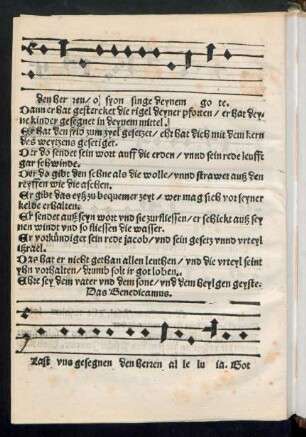 den her ren/ o syon singe deynem go te.
Dann er hat gestercket die rigel deyner pforten / er hat dey
ne kinder gesegnet in deynem mittel.
Er hat den frid zum zyel gesetzet/ eñ hat dich mit dem kern
des weytzens gesetiget.
Der do sendet sein wort auff die erden / vnnd sein rede leufft
gar schwinde.
Der do gibt den schne als die wolle / vnnd strawet auß den
reyffen wie die aschen.
Er gibt das eyß zu bequemer zeyt / wer mag sich vor seyner
kelde erhalten.
Er sendet auß seyn wort vnd sie zurfliessen / er schickt auß sey
nen windt vnd so fliessen die wasser.
Er vorkündiget sein rede jacob/ vnd sein gesetz vnnd vrteyl
israel.
Das hat er nicht gethan allen leuthen / vnd die vrteyl seint
yhn vorhalten / drumb solt ir got loben.
Ehre sey dem vater vnd dem sone / vnd dem heylgen geyste.
Das Benedicamus.
Last vns gesegnen den herren al le lu ia. Got